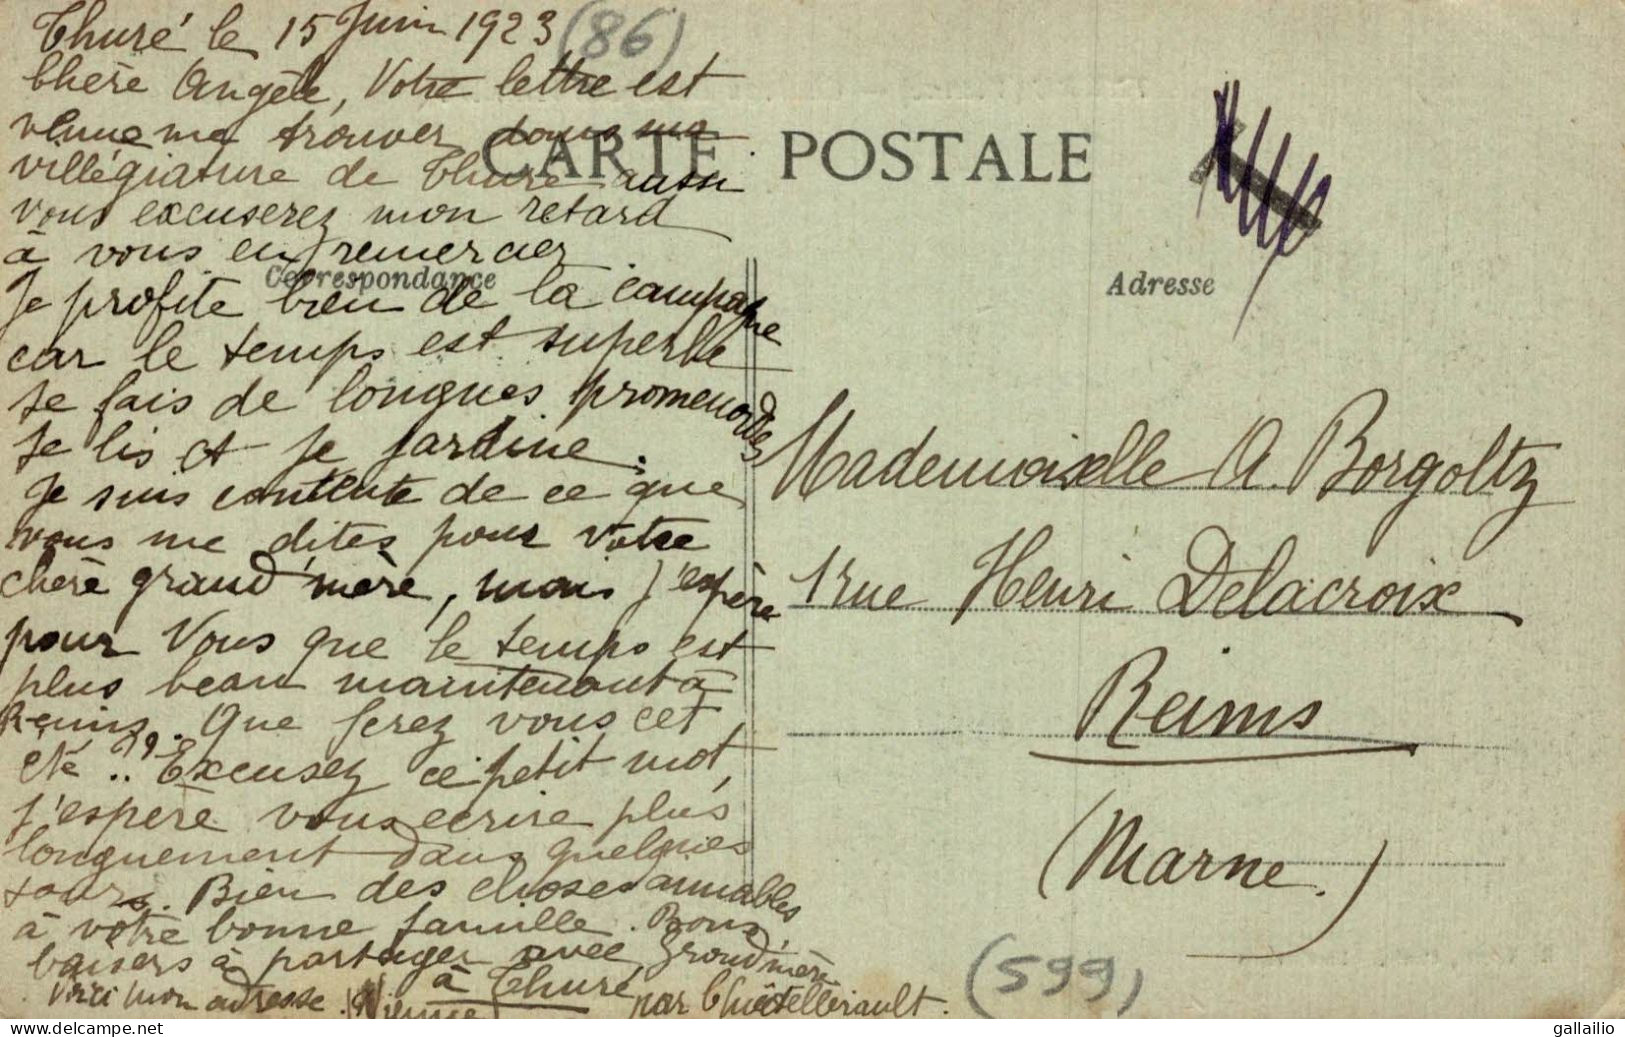 Thuré le 15 Juin 1923 (86)
Chère Angèle, Votre lettre est
venue me trouver dans ma
villégiature de Thuré aussi
vous excuserez mon retard
à vous en remercier
Je profite bien de la campagne
car le temps est superbe
Je fais de longues promenades
Je lis et je jardine.
Je suis contente de ce que
vous me dites pour votre
chère grand'mère, mais j'espère
pour Vous que le temps est
plus beau maintenant à
Reims. Que ferez vous cet
été ?? Excusez ce petit mot,
j'espère vous écrire plus
longuement dans quelques
jours. Bien des choses aimables
à votre bonne famille. Bons
baisers à partager avec grand'mère
Voici mon adresse. à Thuré par Châtellerault.
(Vienne)
CARTE POSTALE
Correspondance
Adresse
Mademoiselle A. Borgoltz
1 rue Henri Delacroix
Reims
(Marne.)
(599)
gallailio